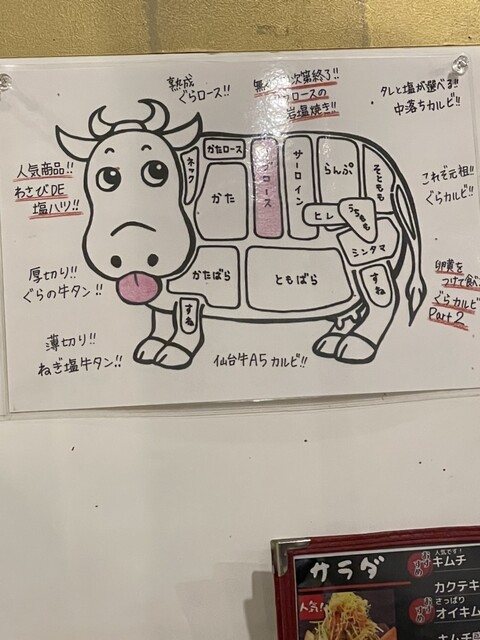 熟成
ぐらロース!!
次第終了!!
ロースの
岩塩焼き!!
タレと塩が選べる!!
中落ちカルビ!!
人気商品!!
わさびDE
塩ハツ!!
これぞ元祖!!
ぐらカルビ!!
厚切り!!
ぐらの牛タン!!
卵黄を
つけて食べ
ぐらカルビ
Part2
薄切り!!
ねぎ塩牛タン!!
仙台牛A5カルビ!!
ネック
かたロース
かた
リブロース
サーロイン
らんぷ
そともも
ヒレ
うちもも
シンタマ
かたばら
ともばら
すね
すね
サラダ
人気です!
おすすめ
キムチ
カクテキ
さっぱり
おすすめ
オイキム
キムチ
人気